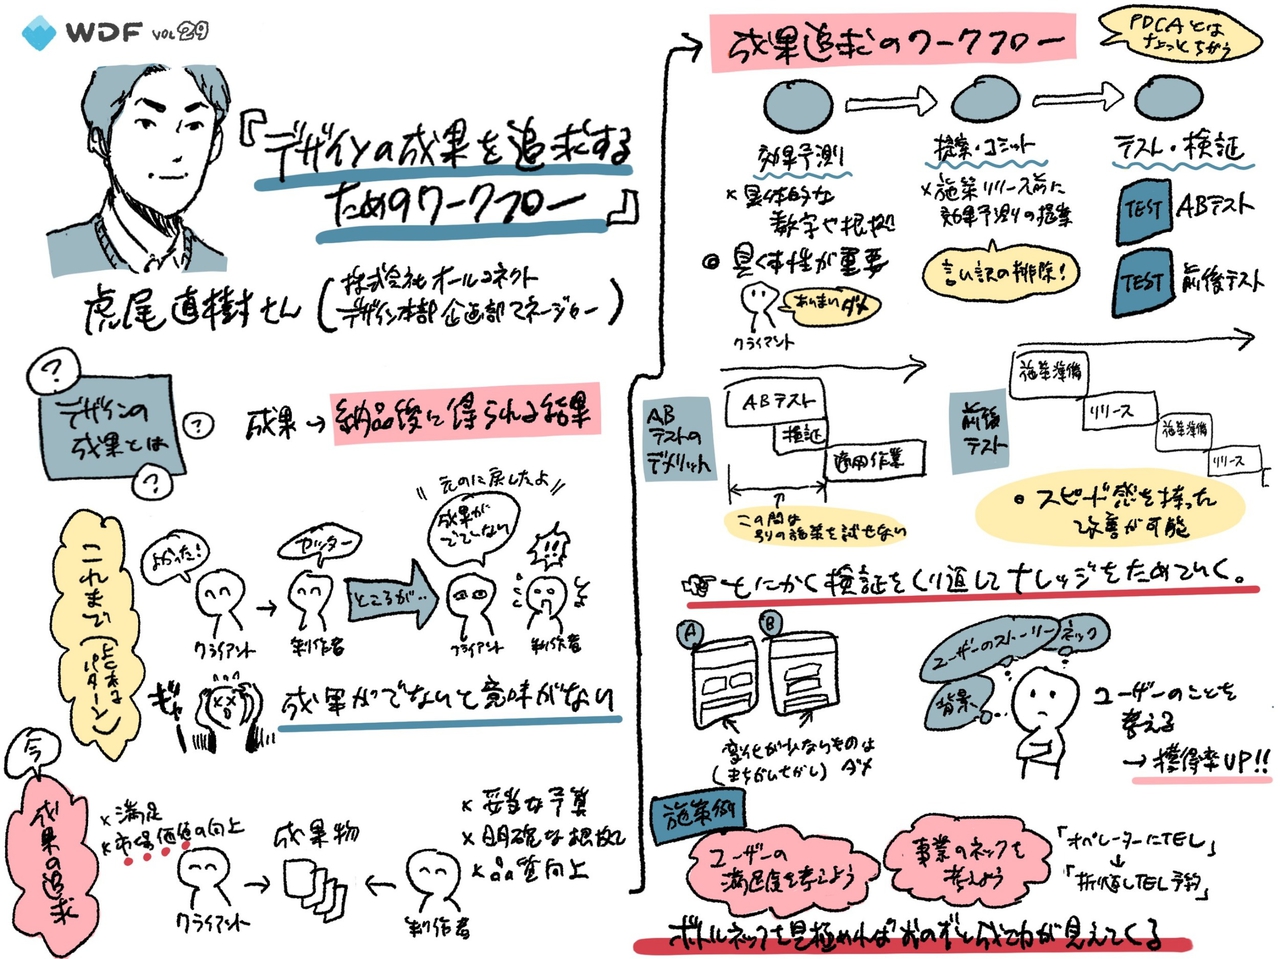 WDF VOL 29
『デザインの成果を追求する
ためのワークフロー』
虎尾 直樹さん
(株式会社 オールコネクト
デザイン本部 企画部 マネージャー)
?
デザインの
成果とは
?
?
成果→納品後に得られる結果
これまで
(よくある
パターン)
よかった!
クライアント
ヤッター
制作者
ところが‥
元のに戻したよ
成果が
でていない
クライアント
!!
制作者
ギャー
成果がでないと意味がない
今
成果の追求
×満足
×市場価値の向上
クライアント
成果物
×妥当な予算
×明確な根拠
×品質向上
制作者
成果追求のワークフロー
PDCAとは
ちょっとちがう
効果予測
×具体的な
数字や根拠
具体性が重要
あいまいダメ
クライアント
提案・コミット
×施策リリース前に
効果予測の提案
言い訳の排除!
テスト・検証
TEST ABテスト
TEST 前後テスト
AB
テストの
デメリット
ABテスト
検証
適用作業
この間は
別の施策を試せない
前後
テスト
施策準備
リリース
施策準備
リリース
・スピード感を持った
改善が可能
とにかく検証をくり返してナレッジをためていく。
A
B
変化が少ないものは
(まちがいさがし) ダメ
ユーザーのストーリー
ネック
背景
ユーザーのことを
考える
→獲得率UP!!
施策例
ユーザーの
満足度を考えよう
事業のネックを
考えよう
「オペレーターにTEL」
↓
「折り返しTEL予約」
ボトルネックを見極めればおのずと成功が見えてくる